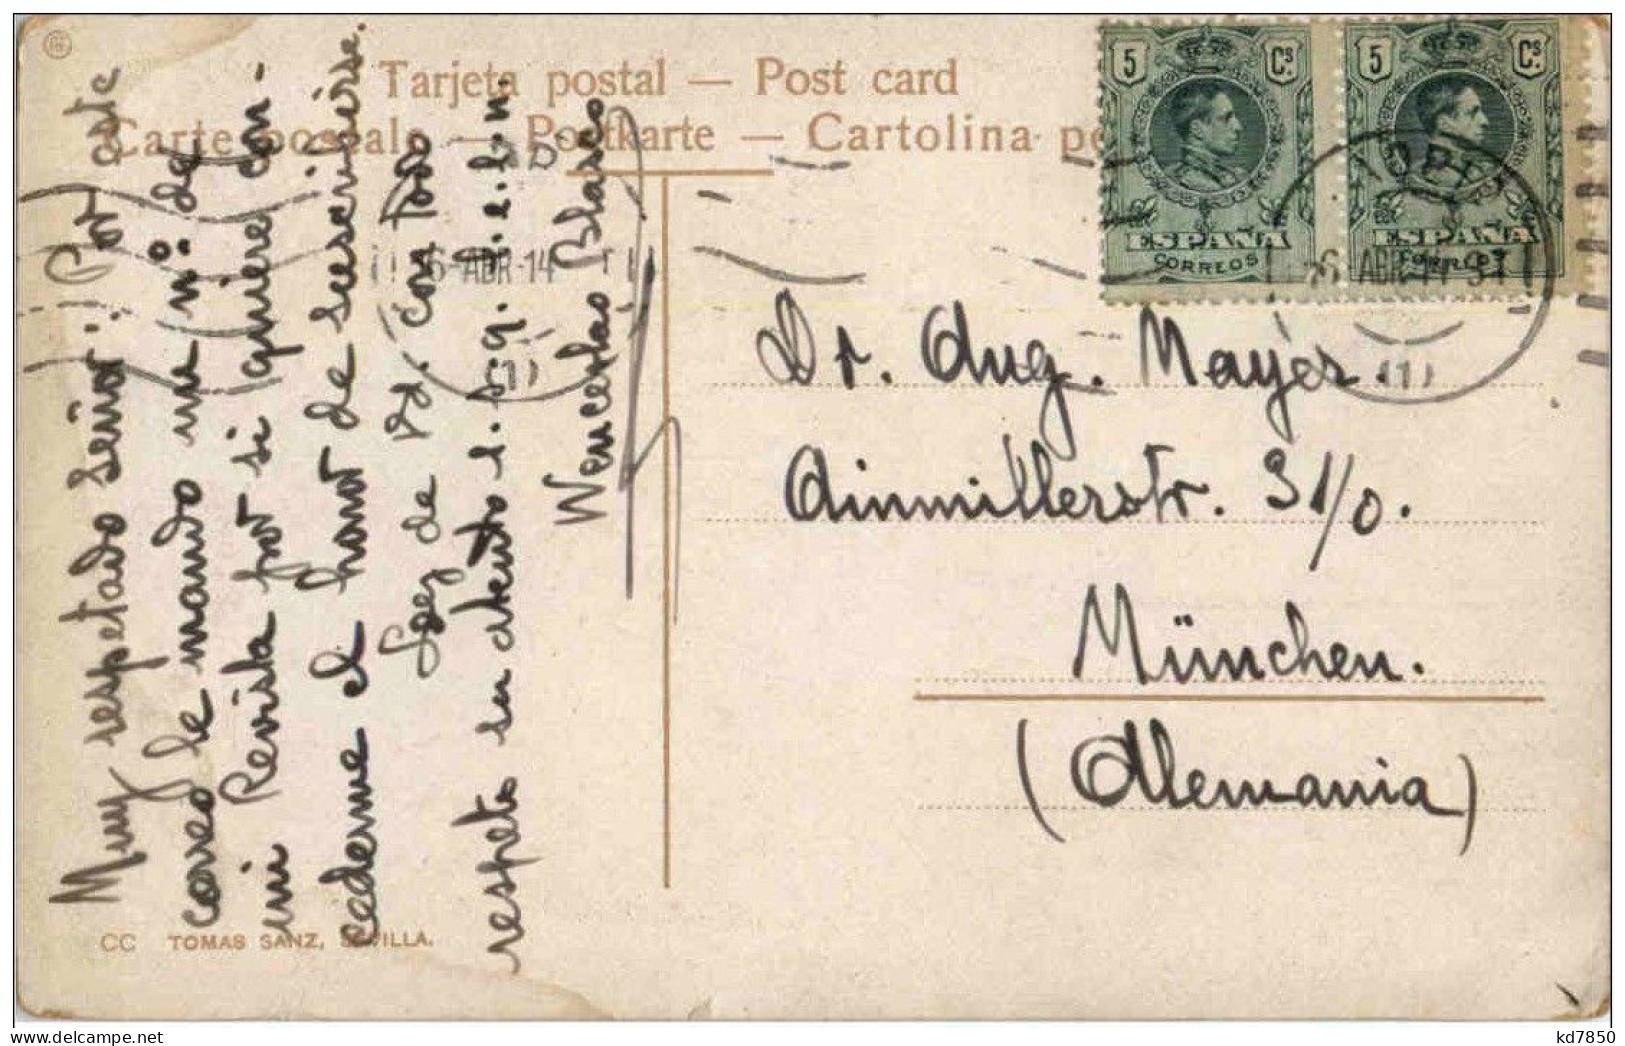 Tarjeta postal — Post card
Carte postale — Postkarte — Cartolina po
5 Cs.
ESPAÑA
CORREOS
5 Cs.
ESPAÑA
CORREOS
6-ABR-14
(1)
6-ABR-14
(1)
Muy respetado Señor: Por este
correo le mando un nº de
mi Revista por si quiere con-
cederme el honor de suscribirse.
Soy de Vd. con todo
respeto su atento s. s. q. b. l. m.
Wenceslao Blasco
Dr. Aug. Mayer.
Ainmillerstr. 31/0.
München.
(Alemania)
CC TOMAS SANZ, SEVILLA.
kd7850